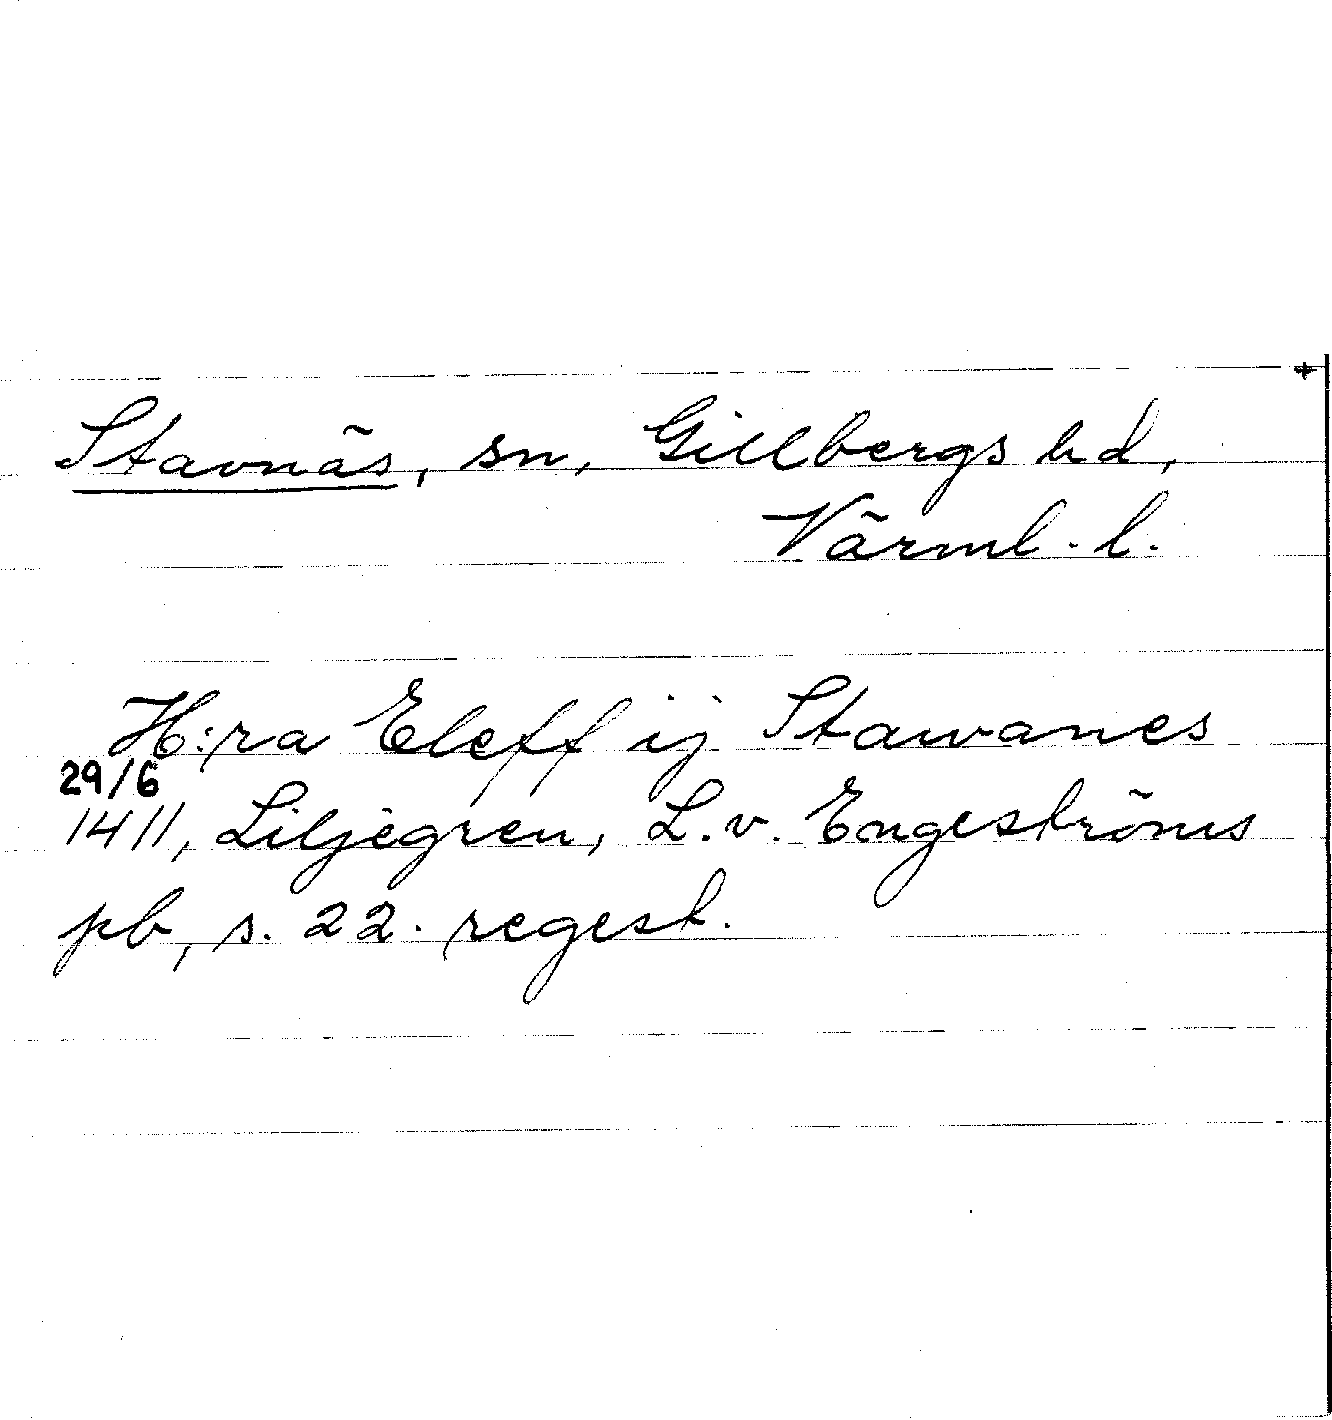 Stavnäs, sn, Gillbergs hd,
Värml. l.
H:ra Eleff ij Stawanes
29/6
1411, Liljegren, L.v. Engeströms
pb, s. 22. regest.